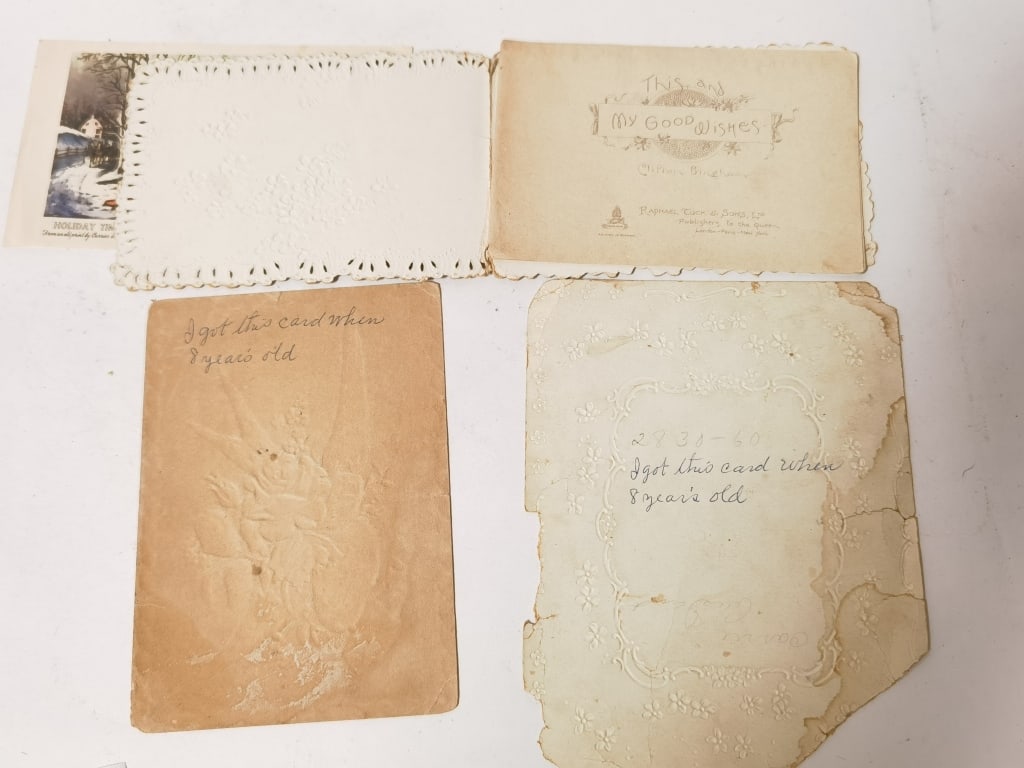 HOLIDAY
This, and
My Good Wishes
Raphael Tuck & Sons, Ltd
Publishers to the Queen
London-Paris-New York
I got this card when
8 year's old
2830-60
I got this card when
8 year's old